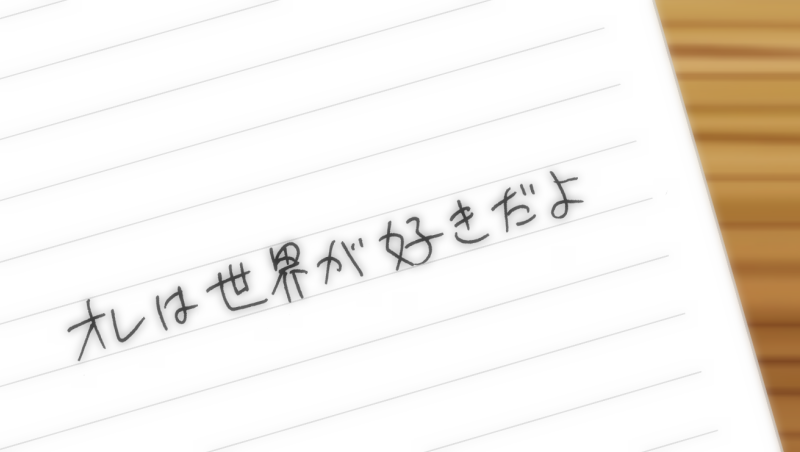 オレは世界が好きだよ